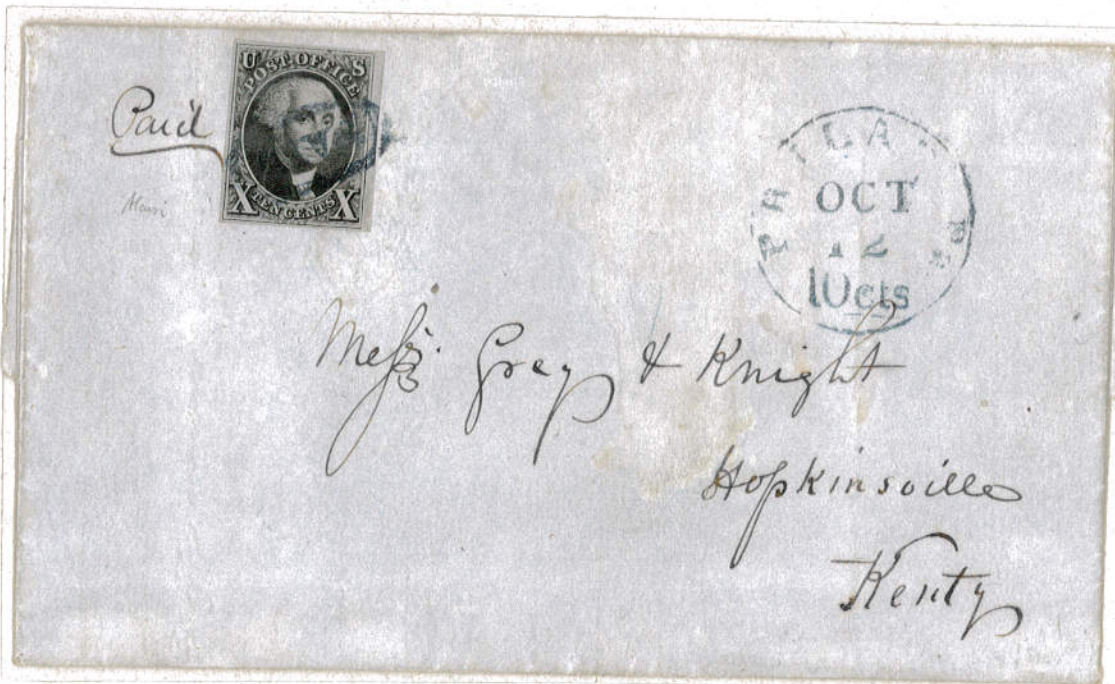 U S
POST OFFICE
X TEN CENTS X
Paid
PHILADA Pa
OCT
12
10cts
Messrs. Grey & Knight
Hopkinsville
Kenty